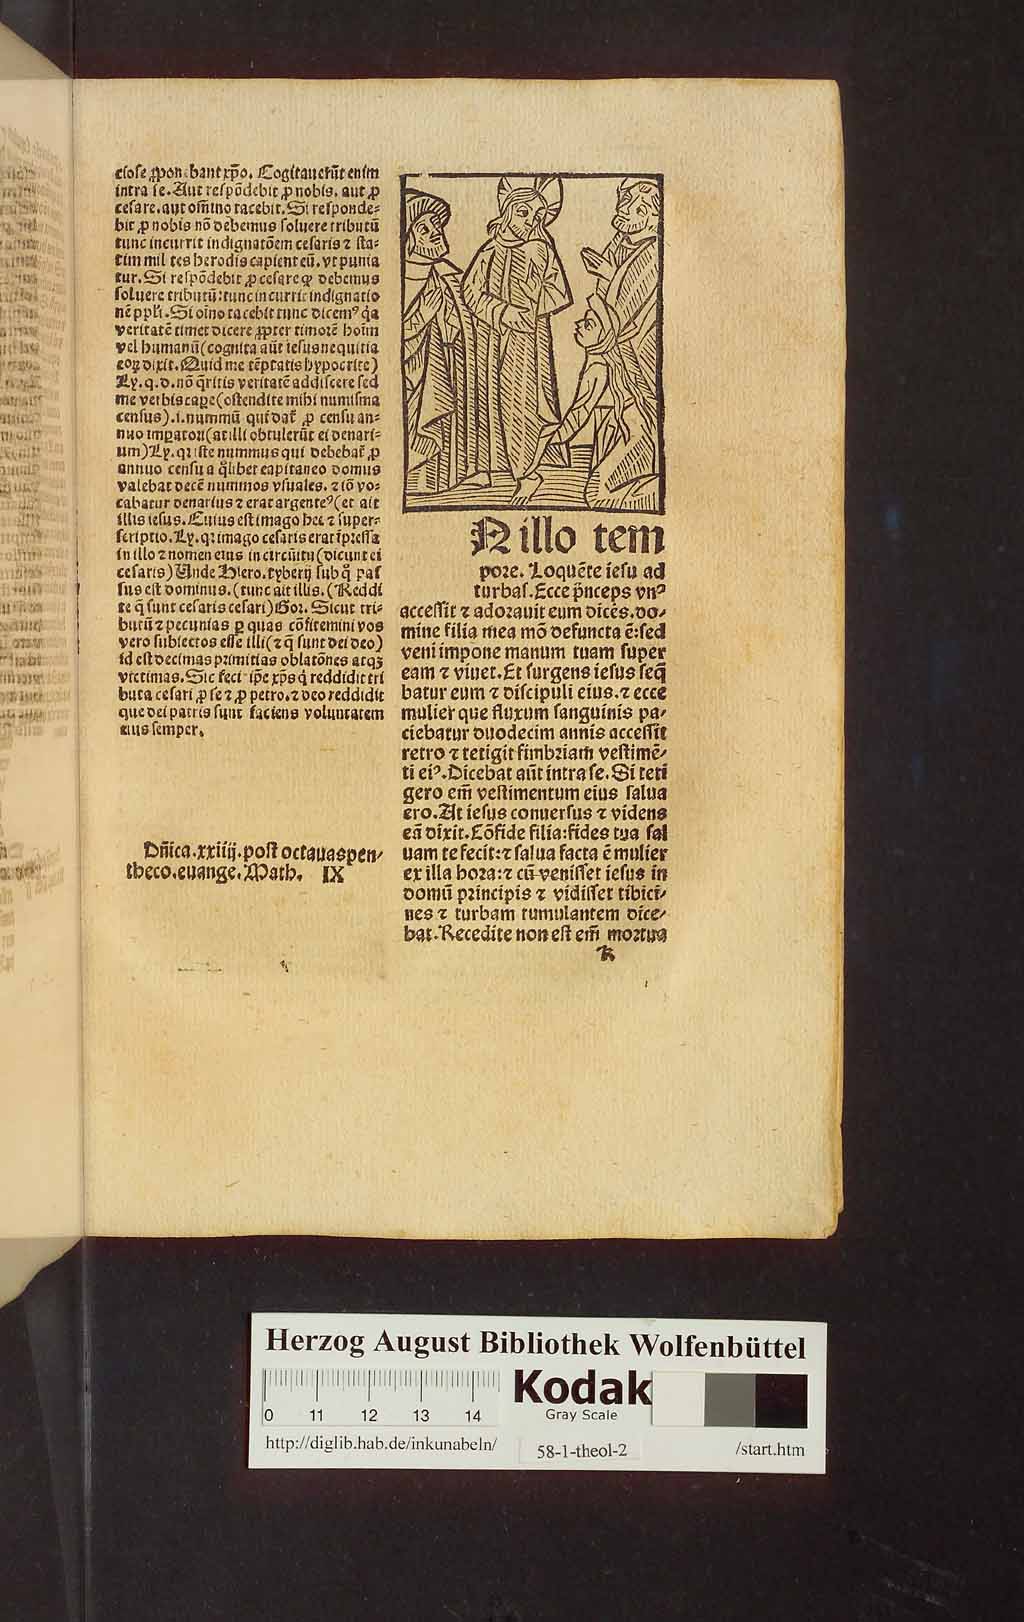 ciose ꝓponebant xp̄o. Cogitauerūt enim
intra se. Aut respōdebit ꝓ nobis. aut ꝓ
cesare. aut om̄ino tacebit. Si responde⸗
bit ꝓ nobis nō debemus soluere tributū
tunc incurrit indignatōem cesaris ⁊ sta⸗
tim milites herodis capient eū. vt punia
tur. Si respōdebit ꝓ cesare ꝙ debemus
soluere tributū: tunc incurrit indignatio
nē ppl̓i. Si oīno tacebit tunc dicemꝰ q̇a
veritatē timet dicere ꝓpter timorē hoīm
vel humanū (cognita aūt iesus nequitia
eoꝝ dixit. Quid me tēptatis hypocrite)
Ly. q. d. nō q̄ritis veritatē addiscere sed
me verbis capere (ostendite mihi numisma
census) .i. nummū qui dat̄ ꝓ censu an⸗
nuo impatori (at illi obtulerūt ei denari⸗
um) Ly. q̇ iste nummus qui debebat̄ ꝓ
annuo censu a q̇libet capitaneo domus
valebat decē nummos vsuales. ⁊ iō vo⸗
cabatur denarius ⁊ erat argenteꝰ (et ait
illis iesus. Cuius est imago hec ⁊ super⸗
scriptio. Ly. q̇ imago cesaris erat īpressa
in illo ⁊ nomen eius in circūitu (dicunt ei
cesaris) Unde Hiero. tyberij sub q̊ pas
sus est dominus. (tunc ait illis. (Reddi
te q̄ sunt cesaris cesari) Gor. Sicut tri⸗
butū ⁊ pecunias ꝑ quas cōfitemini vos
vero subiectos esse illi (⁊ q̄ sunt dei deo)
id est decimas primitias oblatōnes atqꝫ
victimas. Sic feci ip̄e xp̄s q̇ reddidit tri
buta cesari ꝓ se ⁊ ꝓ petro. ⁊ deo reddidit
que dei patris sunt faciens voluntatem
eius semper.
Dn̄ica .xxiiij. post octauas pen⸗
theco. euange. Math. IX
N illo tem
pore. Loquēte iesu ad
turbas. Ecce p̄nceps vnꝰ
accessit ⁊ adorauit eum dices. do⸗
mine filia mea mō defuncta ē: sed
veni impone manum tuam super
eam ⁊ viuet. Et surgens iesus seq̄
batur eum ⁊ discipuli eius. ⁊ ecce
mulier que fluxum sanguinis pa⸗
ciebatur duodecim annis accessit
retro ⁊ tetigit fimbriam vestimē⸗
ti eiꝰ. Dicebat aūt intra se. Si teti
gero em̄ vestimentum eius salua
ero. At iesus conuersus ⁊ videns
eā dixit. Cōfide filia: fides tua sal
uam te fecit: ⁊ salua facta ē mulier
ex illa hora: ⁊ cū venisset iesus in
domū principis ⁊ vidisset tibici⸗
nes ⁊ turbam tumulantem dice⸗
bat. Recedite non est em̄ mortua
k
Herzog August Bibliothek Wolfenbüttel
0 11 12 13 14
Kodak
Gray Scale
http://diglib.hab.de/inkunabeln/ 58-1-theol-2 /start.htm